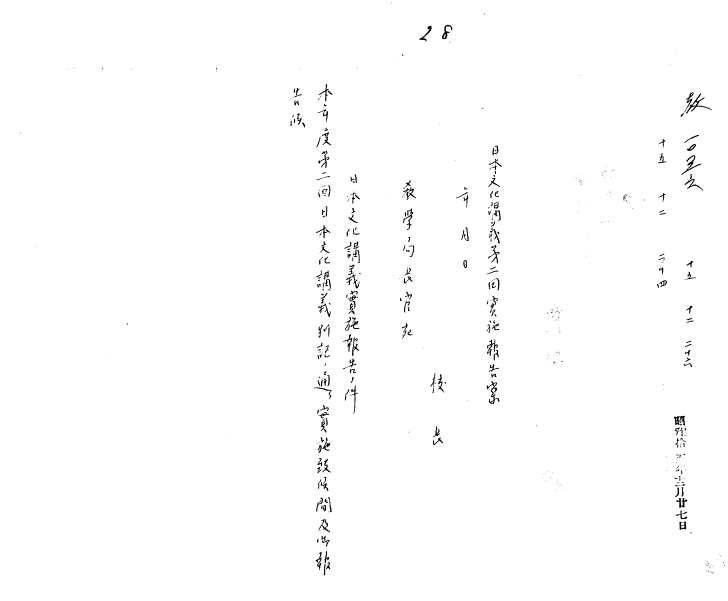 28
教 一〇五六
十五 十二 二十四
十五 十二 二十六
昭和拾五年十二月廿七日
日本文化講義第二回實施報告案
年 月 日
校 長
教學局長官宛
日本文化講義實施報告ノ件
本年度第二回日本文化講義別記ノ通リ實施致候間及御報
告候